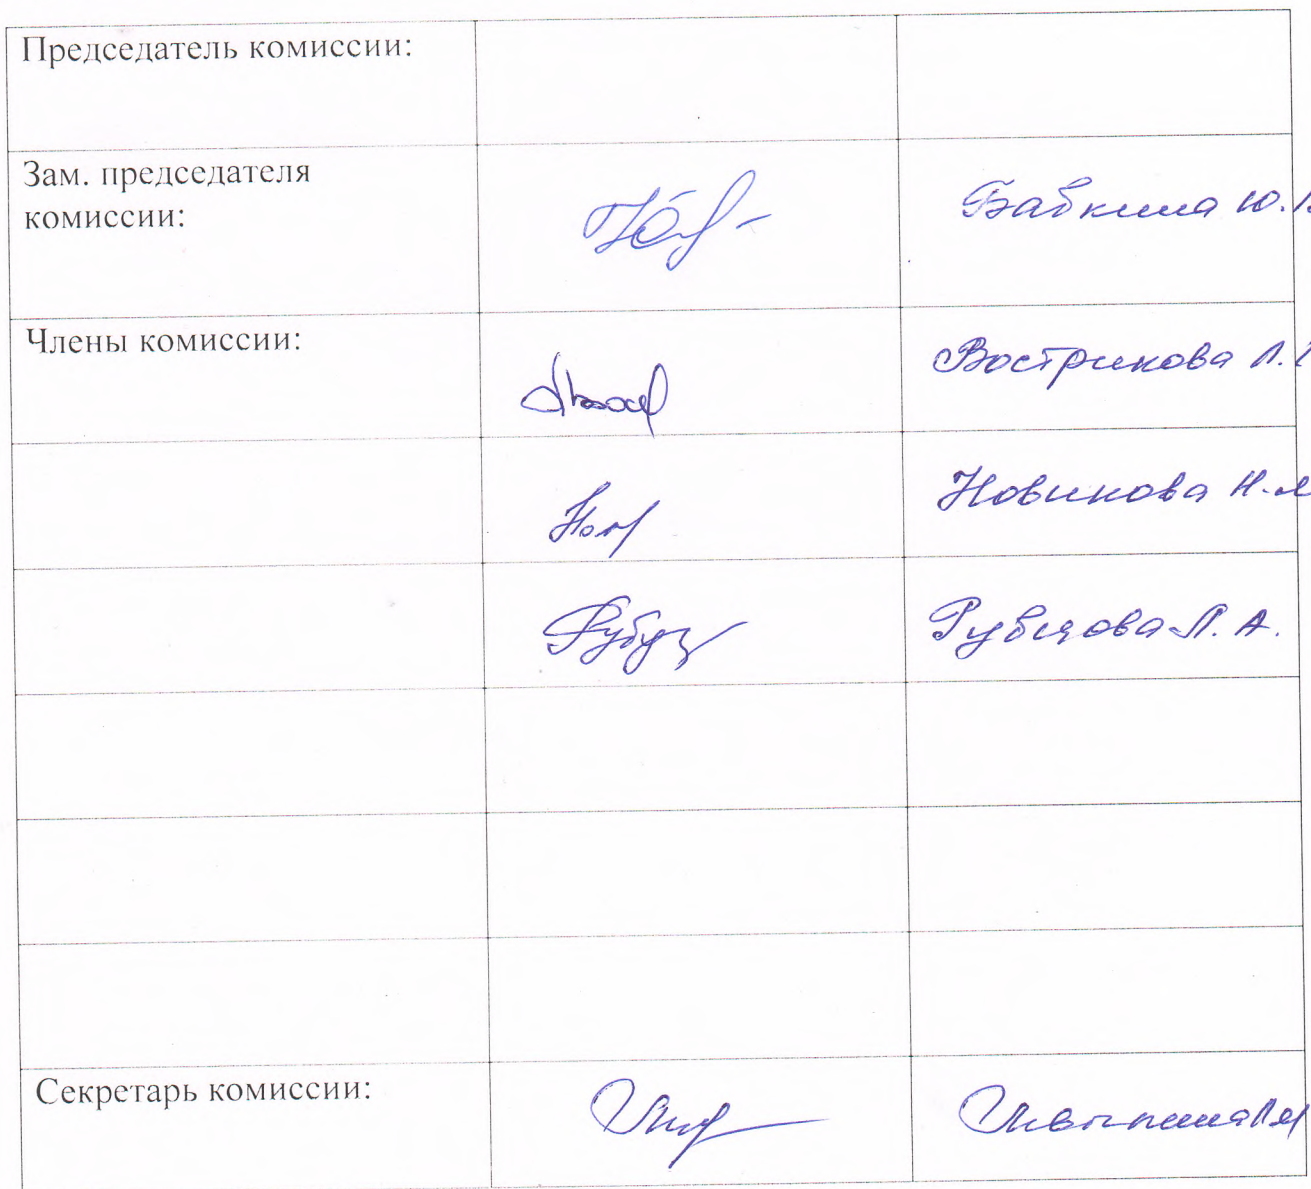 Председатель комиссии:
Зам. председателя
комиссии:
Бабкина Ю.
Члены комиссии:
Вострикова Л.
Новикова Н.
Рубцова Л. А.
Секретарь комиссии: